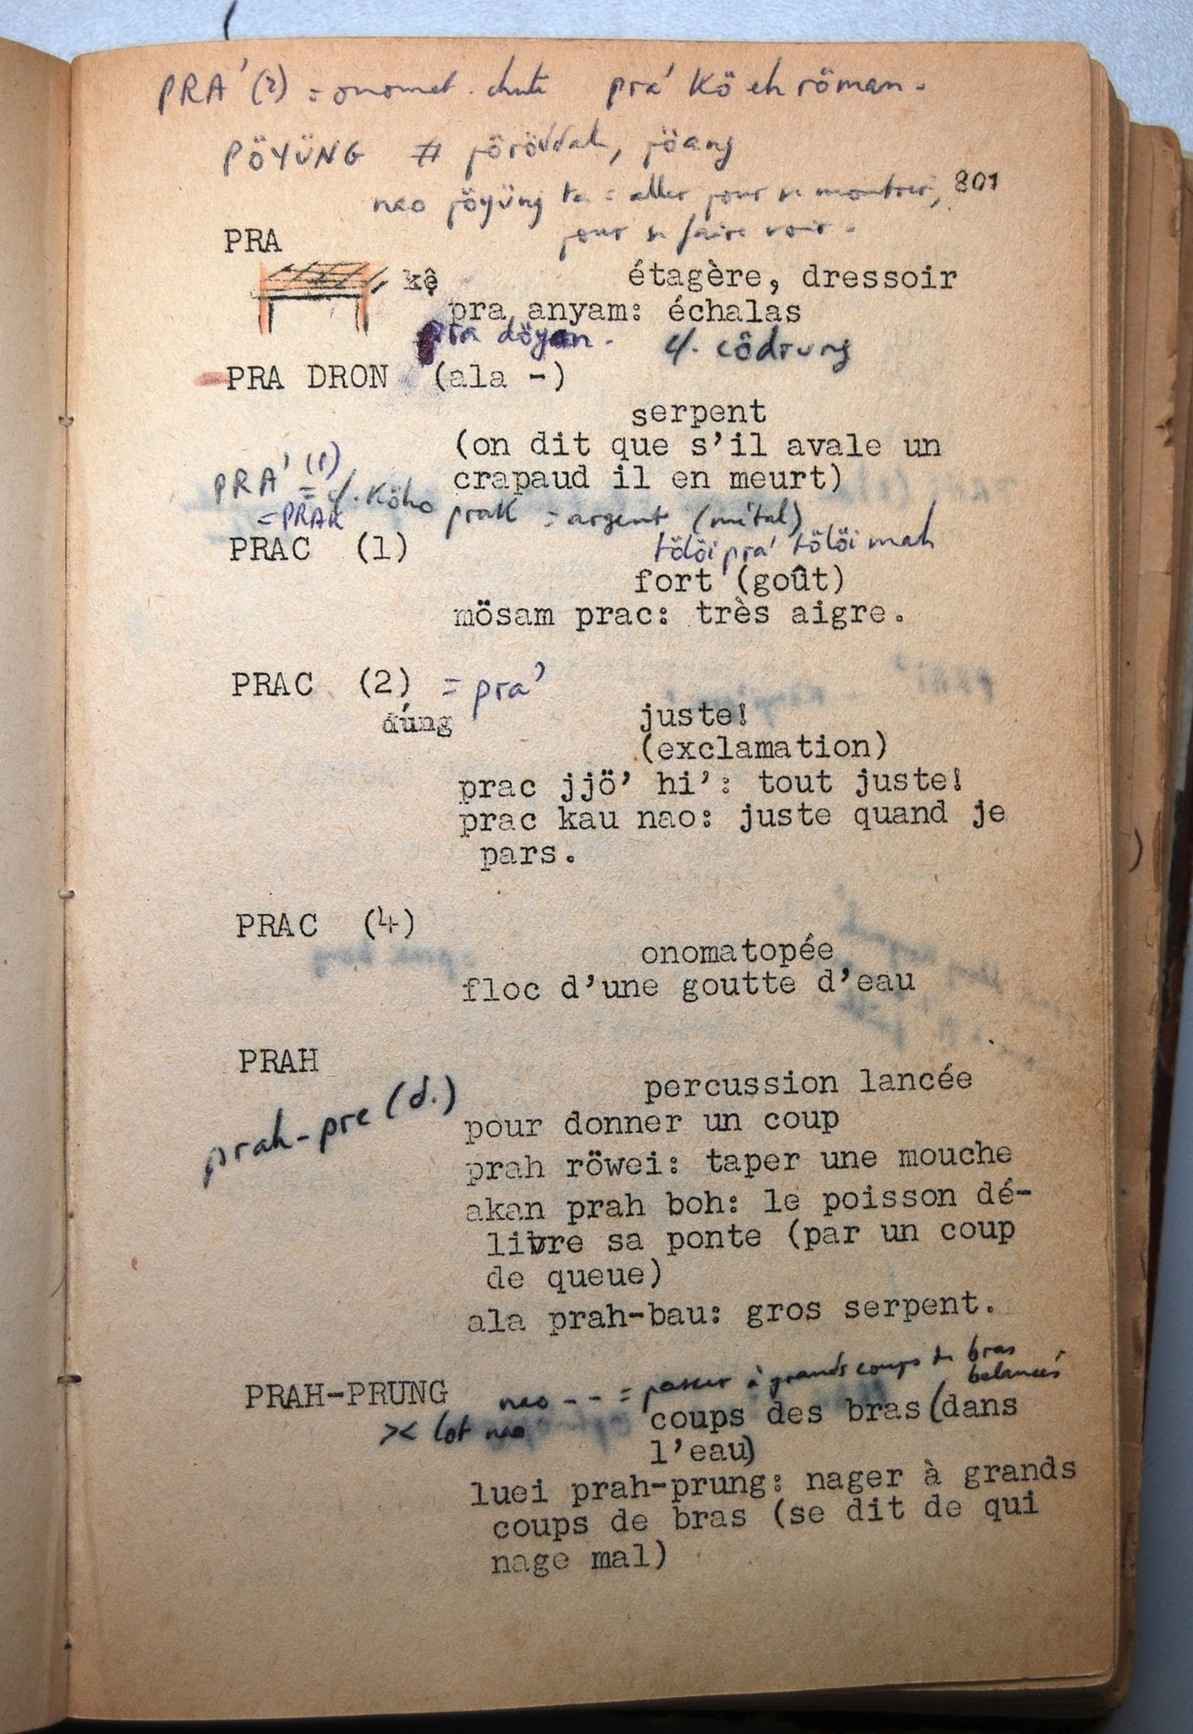 PRA' (2) = onomat. chute prá Kö eh röman.
PÖYÜNG # pöröddah, pöang
nao pöyüng ta = aller pour se montrer,
801
pour se faire voir.
PRA
kệ étagère, dressoir
pra anyam: échalas
pra döyan. cf. cödrung
PRA DRON (ala -)
serpent
(on dit que s'il avale un
crapaud il en meurt)
PRA' (1) = cf. Köho prak = argent (métal)
= PRAK
tölöi pra' tölöi mah
PRAC (1)
fort (goût)
mösam prac: très aigre.
PRAC (2) = pra'
đúng juste!
(exclamation)
prac jjö' hi': tout juste!
prac kau nao: juste quand je
pars.
PRAC (4)
onomatopée
floc d'une goutte d'eau
PRAH
percussion lancée
prah-pre (d.)
pour donner un coup
prah röwei: taper une mouche
akan prah boh: le poisson dé-
livre sa ponte (par un coup
de queue)
ala prah-bau: gros serpent.
PRAH-PRUNG nao - - = passer à grands coups de bras
balancés
>< lot nao coups des bras (dans
l'eau)
luei prah-prung: nager à grands
coups de bras (se dit de qui
nage mal)